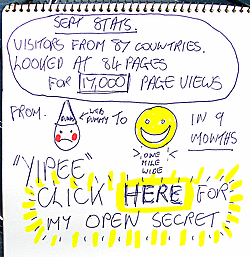 SEPT STATS.
VISITORS FROM 87 COUNTRIES.
LOOKED AT 84 PAGES
FOR 17,000 PAGE VIEWS
FROM. DUNCE WEB DUMMY TO IN 9 MONTHS
ONE MILE WIDE
"YIPEE"
CLICK HERE FOR
MY OPEN SECRET